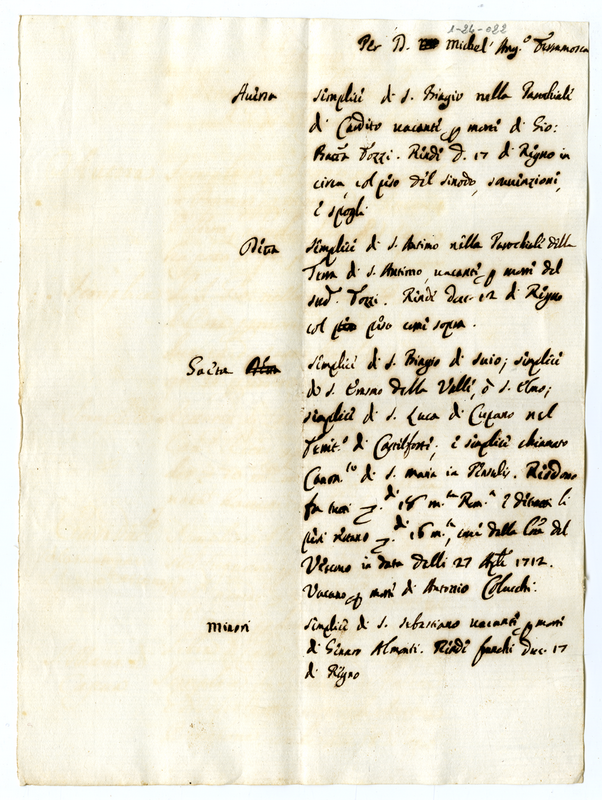 1-24-022
Per D. Michel' Ang.o
Aversa Semplici di S. Biagio nella Parochiale
di Cardito vacanti p morti di Gio:
Batta Tozzi. Rindi D. 17 di Rigno in
circa, col piso del sinodo, sovvinzioni,
e spogli
Ditta Semplici di S. Antimo nella Parochiale della
Terra di S. Antimo, vacanti p morti del
sud. Tozzi. Rindi duc. 12 di Rigno
col piso comi sopra.
Gaeta Semplici di S. Biagio di Suio; simplici
di S. Erasmo della Valli, ò S. Elmo;
simplici di S. Luca di Cupano nel
Territ.o di Castilforti, e simplici chiamato
Canon.to di S. Maria in Pensulis. Rindono
fra tutti di 18 m.ta Rom.a e ditratti li
pisi ristano di 16 m.ta, comi dalla del
Vescovo in data delli 27 1712.
Vacano p morti di Antonio Colucchi.
Minori Semplici di S. Sebastiano vacanti p morti
di Ginnaro Almonti. Rindi franchi duc. 17
di Rigno